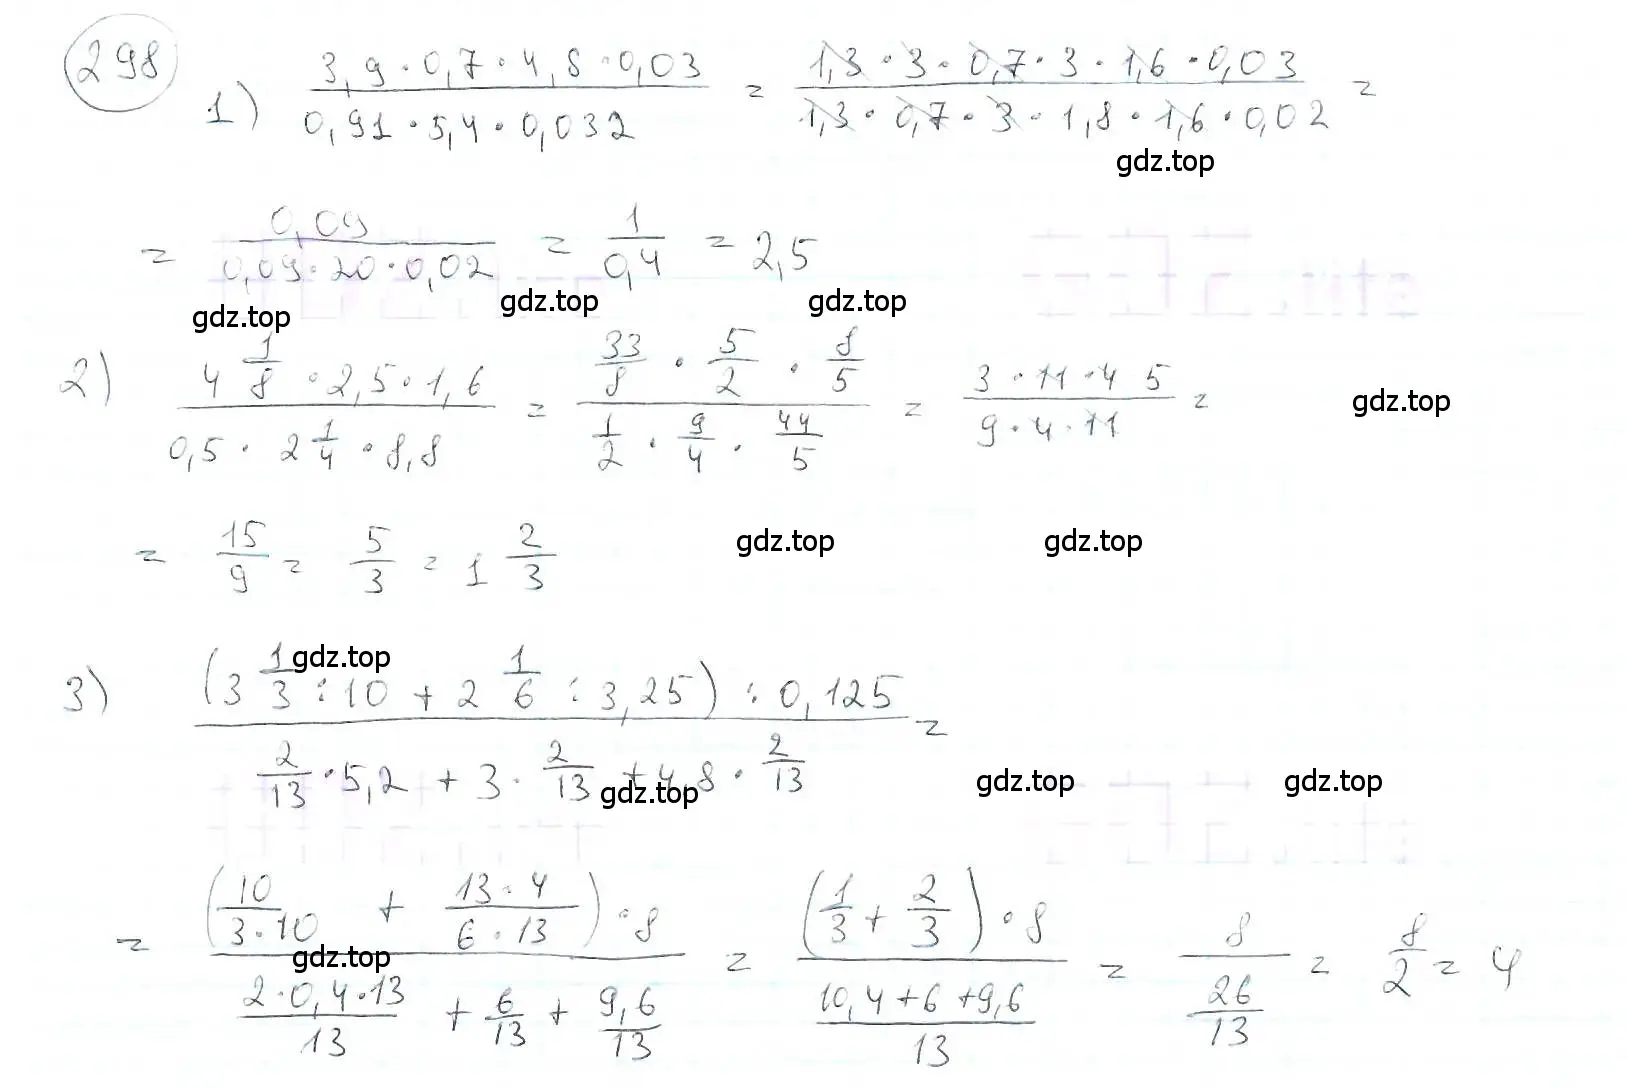 298
1) (3,9 · 0,7 · 4,8 · 0,03) / (0,91 · 5,4 · 0,032) = (1,3 · 3 · 0,7 · 3 · 1,6 · 0,03) / (1,3 · 0,7 · 3 · 1,8 · 1,6 · 0,02) =
gdz.top
= 0,09 / (0,09 · 20 · 0,02) = 1 / 0,4 = 2,5
gdz.top gdz.top gdz.top
2) (4 1/8 · 2,5 · 1,6) / (0,5 · 2 1/4 · 8,8) = (33/8 · 5/2 · 8/5) / (1/2 · 9/4 · 44/5) = (3 · 11 · 4 5) / (9 · 4 · 11) =
gdz.top
= 15/9 = 5/3 = 1 2/3
gdz.top gdz.top
gdz.top
3) ((3 1/3 : 10 + 2 1/6 : 3,25) : 0,125) / (2/13 · 5,2 + 3 · 2/13 + 4,8 · 2/13) =
gdz.top gdz.top gdz.top
= ((10/(3 · 10) + (13 · 4)/(6 · 13)) · 8) / ((2 · 0,4 · 13)/13 + 6/13 + 9,6/13) = ((1/3 + 2/3) · 8) / ((10,4 + 6 + 9,6)/13) = 8 / (26/13) = 8/2 = 4
gdz.top